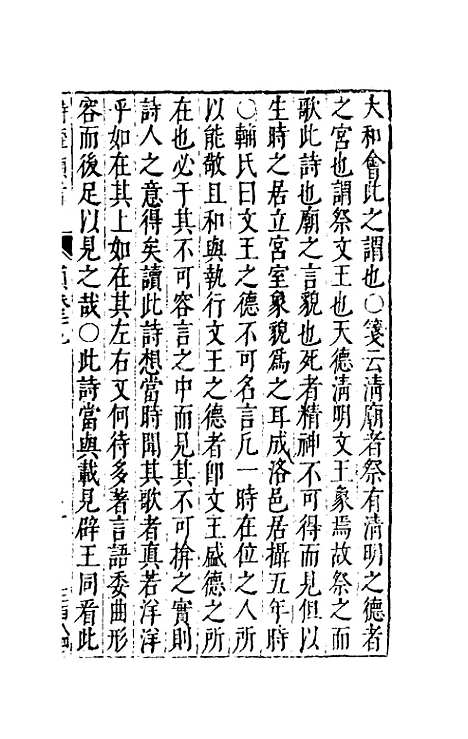 大和會此之謂也○箋云淸廟者祭有淸明之德者
之宮也謂祭文王也天德淸明文王象焉故祭之而
歌此詩也廟之言貌也死者精神不可得而見但以
生時之居立宮室象貌爲之耳成洛邑居攝五年時
○輔氏曰文王之德不可名言凡一時在位之人所
以能敬且和與執行文王之德者卽文王盛德之所
在也必于其不可容言之中而見其不可揜之實則
詩人之意得矣讀此詩想當時聞其歌者真若洋洋
乎如在其上如在其左右又何待多著言語委曲形
容而後足以見之哉○此詩當與載見辟王同看此